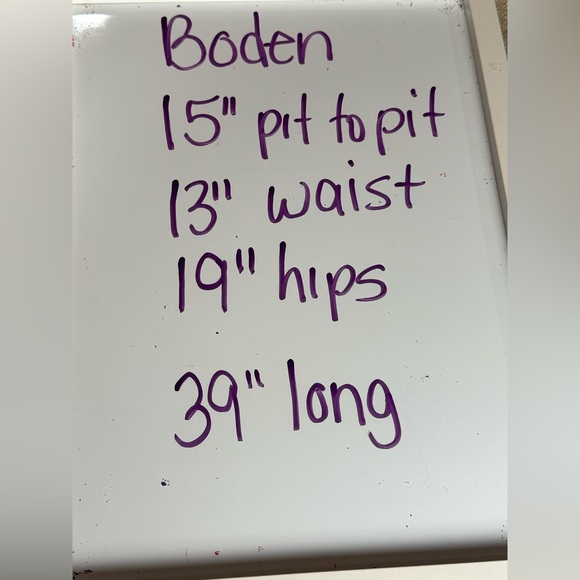 Boden
15" pit to pit
13" waist
19" hips
39" long